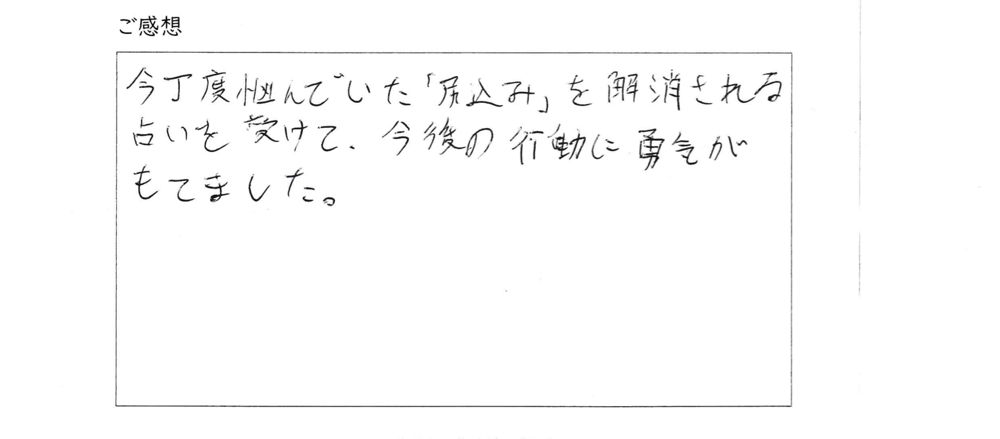 ご感想
今丁度悩んでいた「尻込み」を解消される
占いを受けて、今後の行動に勇気が
もてました。